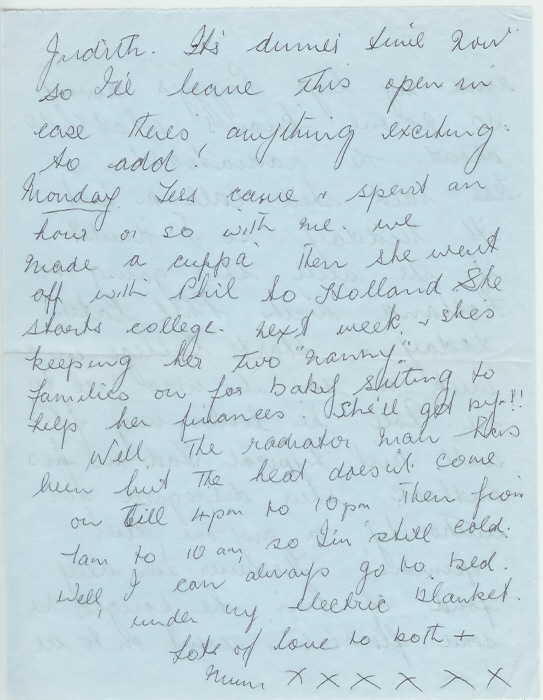 Judith. It's dinner time now
so I'll leave this open in
case there's anything exciting
to add!
Monday. Tess came & spent an
hour or so with me. we
made a cuppa Then she went
off with Phil to Holland She
starts college. next week, & she's
keeping her two "nanny"
families on for baby sitting to
help her finances. She'll get by-!!
Well The radiator man has
been but The heat doesn't come
on till 4pm to 10pm Then from
7am to 10 am, so I'm still cold.
Well, I can always go to bed.
under my electric blanket.
Lots of love to both +
Mum X X X X X X